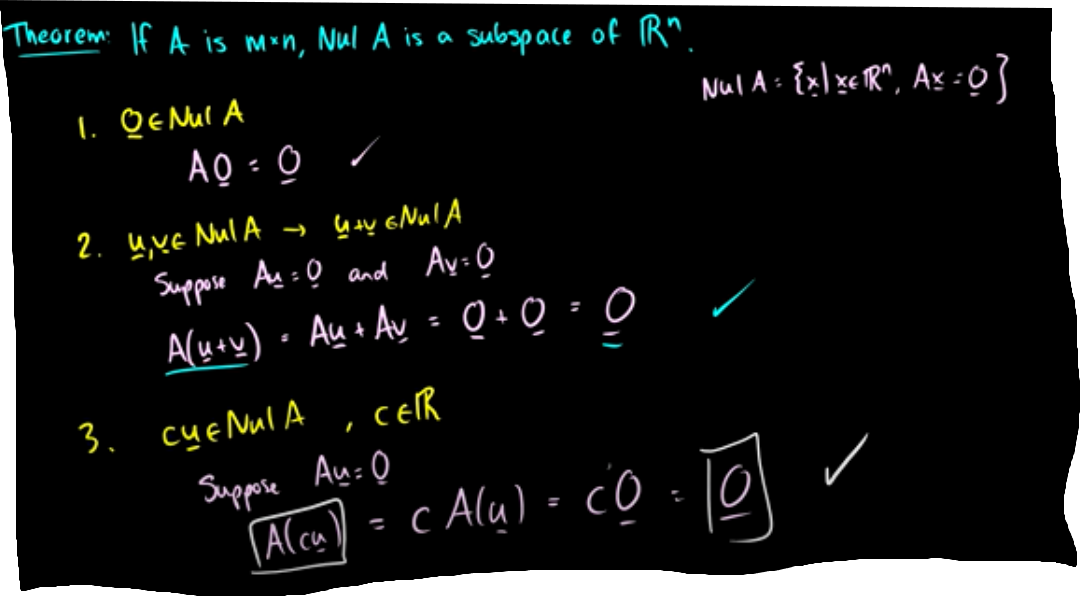 Theorem: If A is m×n, Nul A is a subspace of ℝⁿ.
Nul A = {x | x ∈ ℝⁿ, Ax = 0}
1. 0 ∈ Nul A
A0 = 0 ✓
2. u, v ∈ Nul A → u+v ∈ Nul A
Suppose Au = 0 and Av = 0
A(u+v) = Au + Av = 0 + 0 = 0 ✓
3. cu ∈ Nul A , c ∈ ℝ
Suppose Au = 0
A(cu) = c A(u) = c0 = 0 ✓